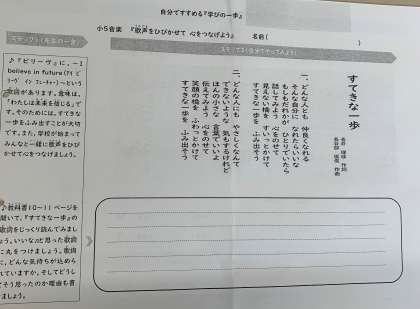 自分ですすめる『学びの一歩』
小5音楽 『歌声をひびかせて 心をつなげよう』 名前(                )
ステップ1(先生の一言)
ステップ2(自分でやってみよう)
♪『ビリーヴ』に、-I
believe in future(アイ ビ
リーヴ イン フューチャー)~という
歌詞があります。意味は、
「わたしは未来を信じる」で
す。そのためには、すてきな
一歩をふみ出すことが大切
です。また、学校が始まって
みんなと一緒に歌声をひび
かせて心をつなげましょう。
♪教科書(0-1)ページを
開いて、『すてきな一歩』の
歌詞をじっくり読んでみまし
ょう。いいなと思った歌詞
に丸をつけましょう。歌詞
に、どんな気持ちが込めら
れていますか。そしてどうし
てそう思ったのか理由も書
きましょう。
すてきな一歩
作詞
作曲
一、どんな人とも 仲良くなれる
そんな自分に なれたらいいな
もしもだれかが ひとりでいたら
話してみよう 心をのせて
見えない橋を すっとかけて
すてきな一歩を ふみ出そう
二、どんな人にも やさしくなんて
できないような 気もするけれど
ほんの小さな 言葉でいいよ
伝えてみよう 心をのせて
笑顔の橋を ふわっとかけて
すてきな一歩を ふみ出そう